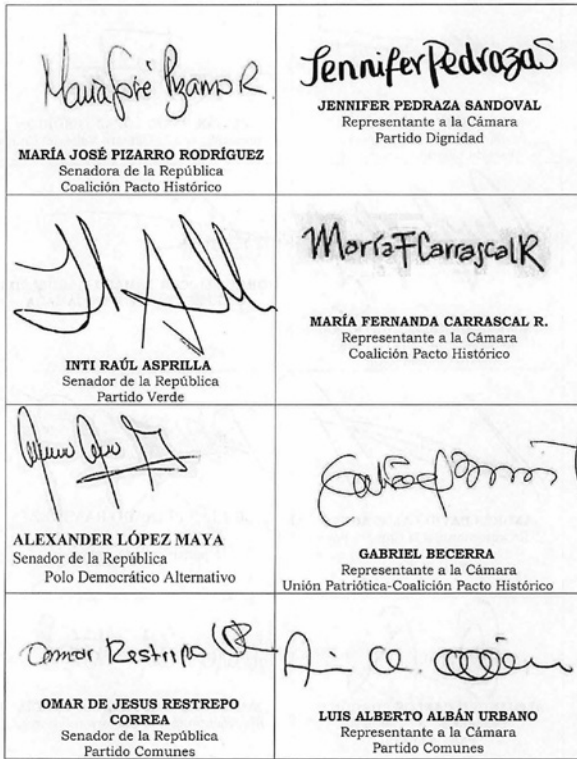 María José Pizarro R
MARÍA JOSÉ PIZARRO RODRÍGUEZ
Senadora de la República
Coalición Pacto Histórico
Jennifer Pedraza S
JENNIFER PEDRAZA SANDOVAL
Representante a la Cámara
Partido Dignidad
INTI RAÚL ASPRILLA
Senador de la República
Partido Verde
María F Carrascal R
MARÍA FERNANDA CARRASCAL R.
Representante a la Cámara
Coalición Pacto Histórico
ALEXANDER LÓPEZ MAYA
Senador de la República
Polo Democrático Alternativo
GABRIEL BECERRA
Representante a la Cámara
Unión Patriótica-Coalición Pacto Histórico
Omar Restrepo
OMAR DE JESUS RESTREPO
CORREA
Senador de la República
Partido Comunes
LUIS ALBERTO ALBÁN URBANO
Representante a la Cámara
Partido Comunes